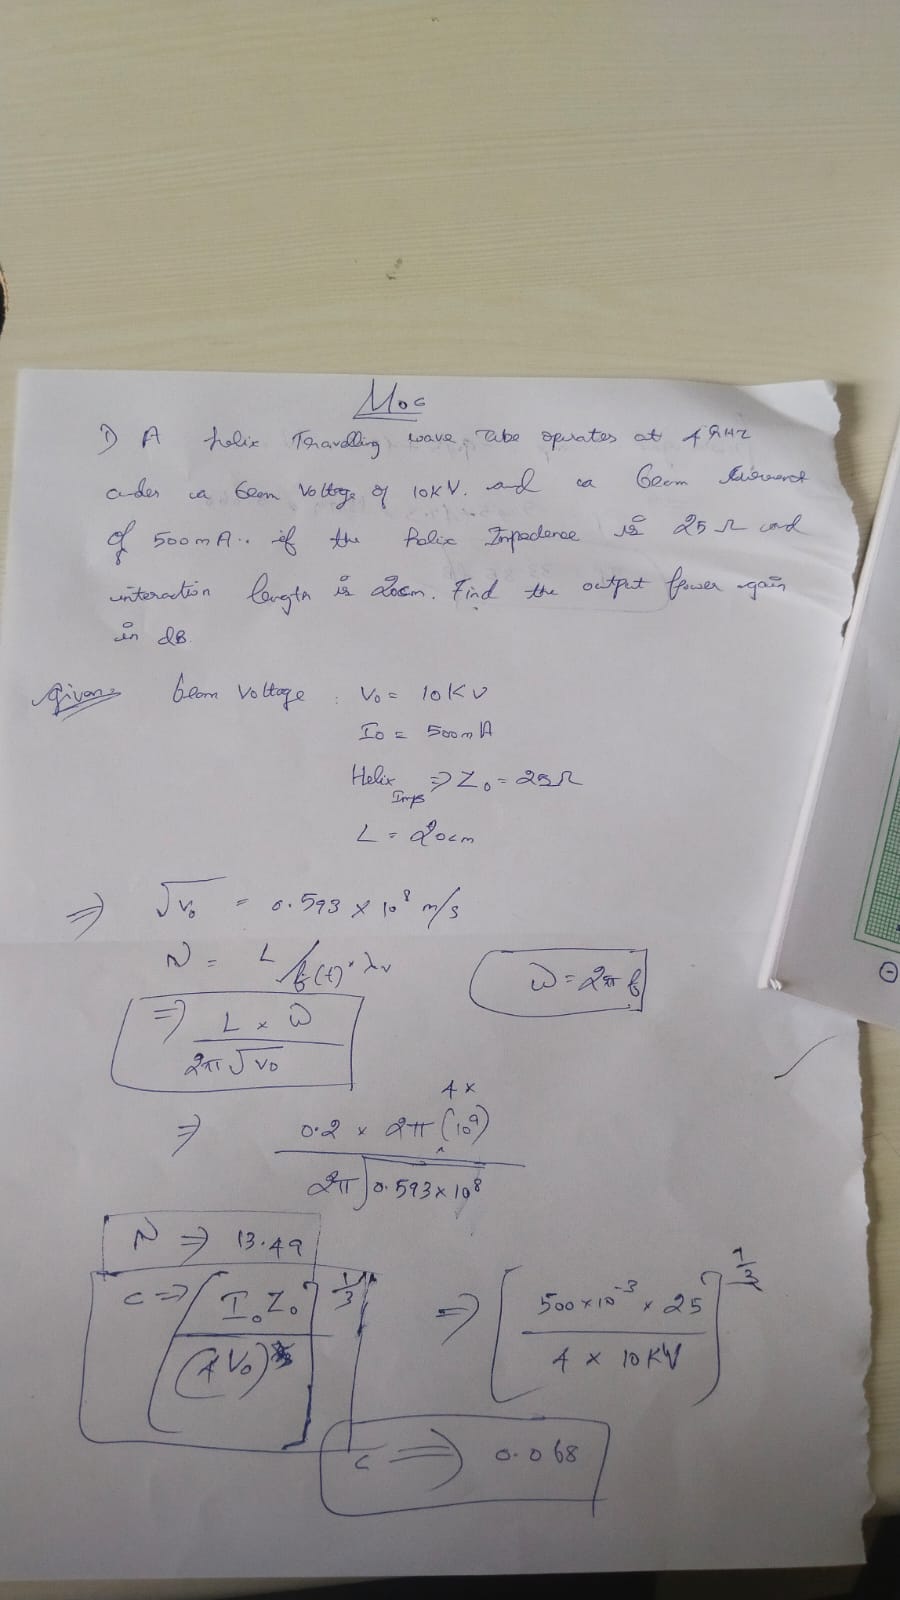 Moc
1) A helix Travelling wave Tube operates at 4 GHz
under a beam Voltage of 10KV. and a beam current
of 500mA.. if the helix Impedence is 25 Ω and
interaction length is 20cm. Find the output power gain
in dB.
Given beam Voltage : V₀ = 10KV
I₀ = 500mA
Helix Imps ⇒ Z₀ = 25Ω
L = 20cm
⇒ √V₀ = 0.593 × 10⁸ m/s
N = L /
⇒ L × ω / 2π√V₀
ω = 2πf
⇒ 0.2 × 2π (4 × 10⁹) / 2π√0.593 × 10⁸
N ⇒ 13.49
C ⇒ [I₀Z₀ / (4V₀)]^1/3 ⇒ [500 × 10⁻³ × 25 / 4 × 10KV]^1/3
C ⇒ 0.068